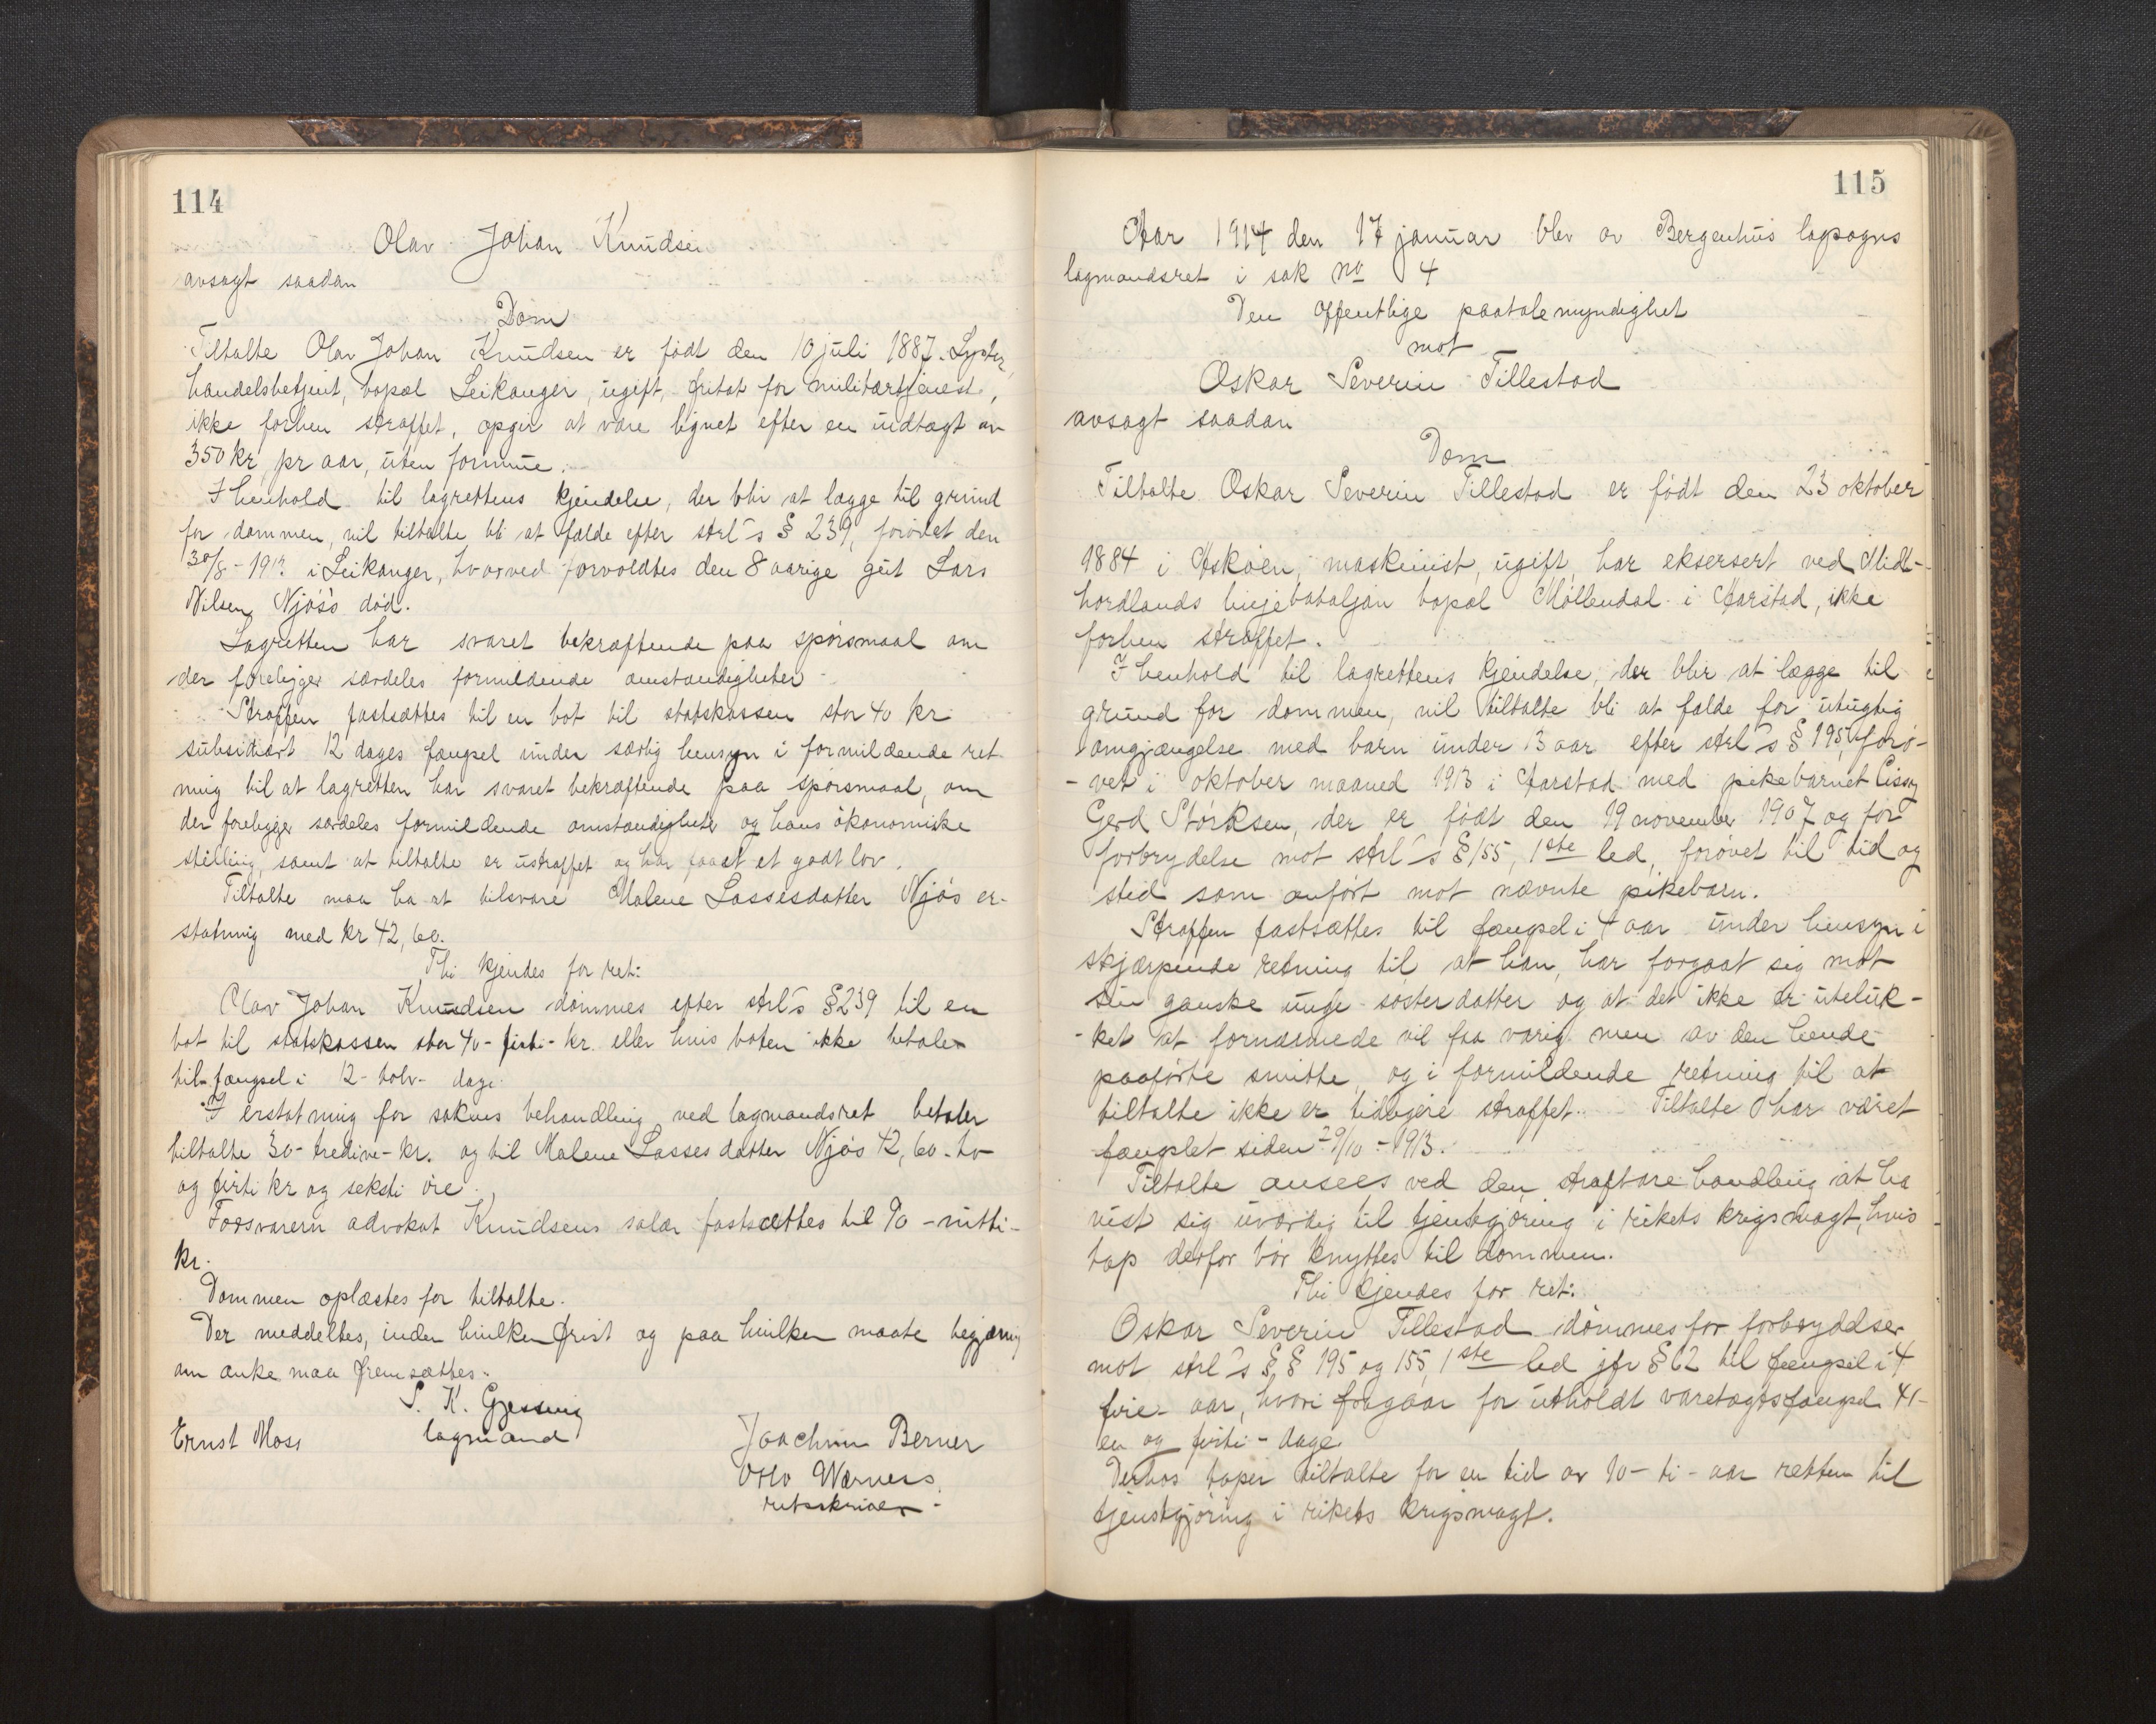 114
Olav Johan Knudsen
avsagt saadan
Dom
Tiltalte Olav Johan Knudsen er født den 10 juli 1887. Lyster,
handelsbetjent, bopæl Leikanger, ugift, fritat for militærtjenest,
ikke forhen straffet, opgir at være lignet efter en indtægt av
350 kr pr aar, uten formue.
I henhold til lagrettens kjendelse, der blir at lægge til grund
for dommen, vil tiltalte bli at fælde efter strl's § 239, forøvet den
30/8 - 1913 i Leikanger, hvorved forvoldtes den 8 aarige gut Lars
Nilsen Njøs's død.
Lagretten har svaret bekræftende paa spørsmaal om
der foreligger særdeles formildende omstændigheter.
Straffen fastsættes til en bot til statskassen stor 40 kr
subsidiært 12 dages fængsel under særlig hensyn i formildende ret
ning til at lagretten har svaret bekræftende paa spørsmaal, om
der foreligger særdeles formildende omstændigheter og hans økonomiske
stilling, samt at tiltalte er ustraffet og har faaet et godt lov.
Tiltalte maa ha at tilsvare Malene Lassesdatter Njøs er-
statning med kr 42,60.
Thi kjendes for ret:
Olav Johan Knudsen dømmes efter strl's § 239 til en
bot til statskassen stor 40 - firti - kr. eller hvis boten ikke betales
til fængsel i 12 - tolv - dage.
I erstatning for sakens behandling ved lagmandsret betaler
tiltalte 30 - tredive - kr. og til Malene Lassesdatter Njøs 42,60 - to
og firti kr og seksti øre.
Forsvareren advokat Knudsens salær fastsættes til 90 - nitti -
kr.
Dommen oplæstes for tiltalte.
Der meddeltes, inden hvilken frist og paa hvilken maate begjæring
om anke maa fremsættes.
S. K. Gjessing
lagmand
Ernst Moss
Joachim Berner
Otto Werners
retsskriver.
115
Aar 1914 den 17 januar blev av Bergenhus lagsogns
lagmandsret i sak no 4
Den offentlige paatalemyndighet
mot
Oskar Severin Tillestad
avsagt saadan
Dom
Tiltalte Oskar Severin Tillestad er født den 23 oktober
1884 i Askøen, maskinist, ugift, har eksersert ved Mid-
hordlands linjebataljon bopæl Møllendal i Aarstad, ikke
forhen straffet.
I henhold til lagrettens kjendelse, der blir at lægge til
grund for dommen, vil tiltalte bli at fælde for utugtig
omgjængelse med barn under 13 aar efter strl's § 195, forø-
- vet i oktober maaned 1913 i Aarstad med pikebarnet Cissy
Gerd Størksen, der er født den 19 november 1907 og for
forbrydelse mot strl's § 155, 1ste led, forøvet til tid og
sted som anført mot nævnte pikebarn.
Straffen fastsættes til fængsel i 4 aar under hensyn i
skjærpende retning til at han har forgaat sig mot
sin ganske unge søsterdatter og at det ikke er uteluk-
- ket at fornærmede vil faa varig men av den hende
paaførte smitte, og i formildende retning til at
tiltalte ikke er tidligere straffet. Tiltalte har været
fængslet siden 29/10 - 1913.
Tiltalte ansees ved den strafbare handling at ha
vist sig uværdig til tjenstgjøring i rikets krigsmagt, hvis
tap derfor bør knyttes til dommen.
Thi kjendes for ret:
Oskar Severin Tillestad dømmes for forbrydelser
mot strl's §§ 195 og 155, 1ste led jfr § 62 til fængsel i 4
fire - aar, hvori fragaar for utholdt varetægtsfængsel 41 -
en og firti - dage.
Derhos taper tiltalte for en tid av 10 - ti - aar retten til
tjenstgjøring i rikets krigsmagt.